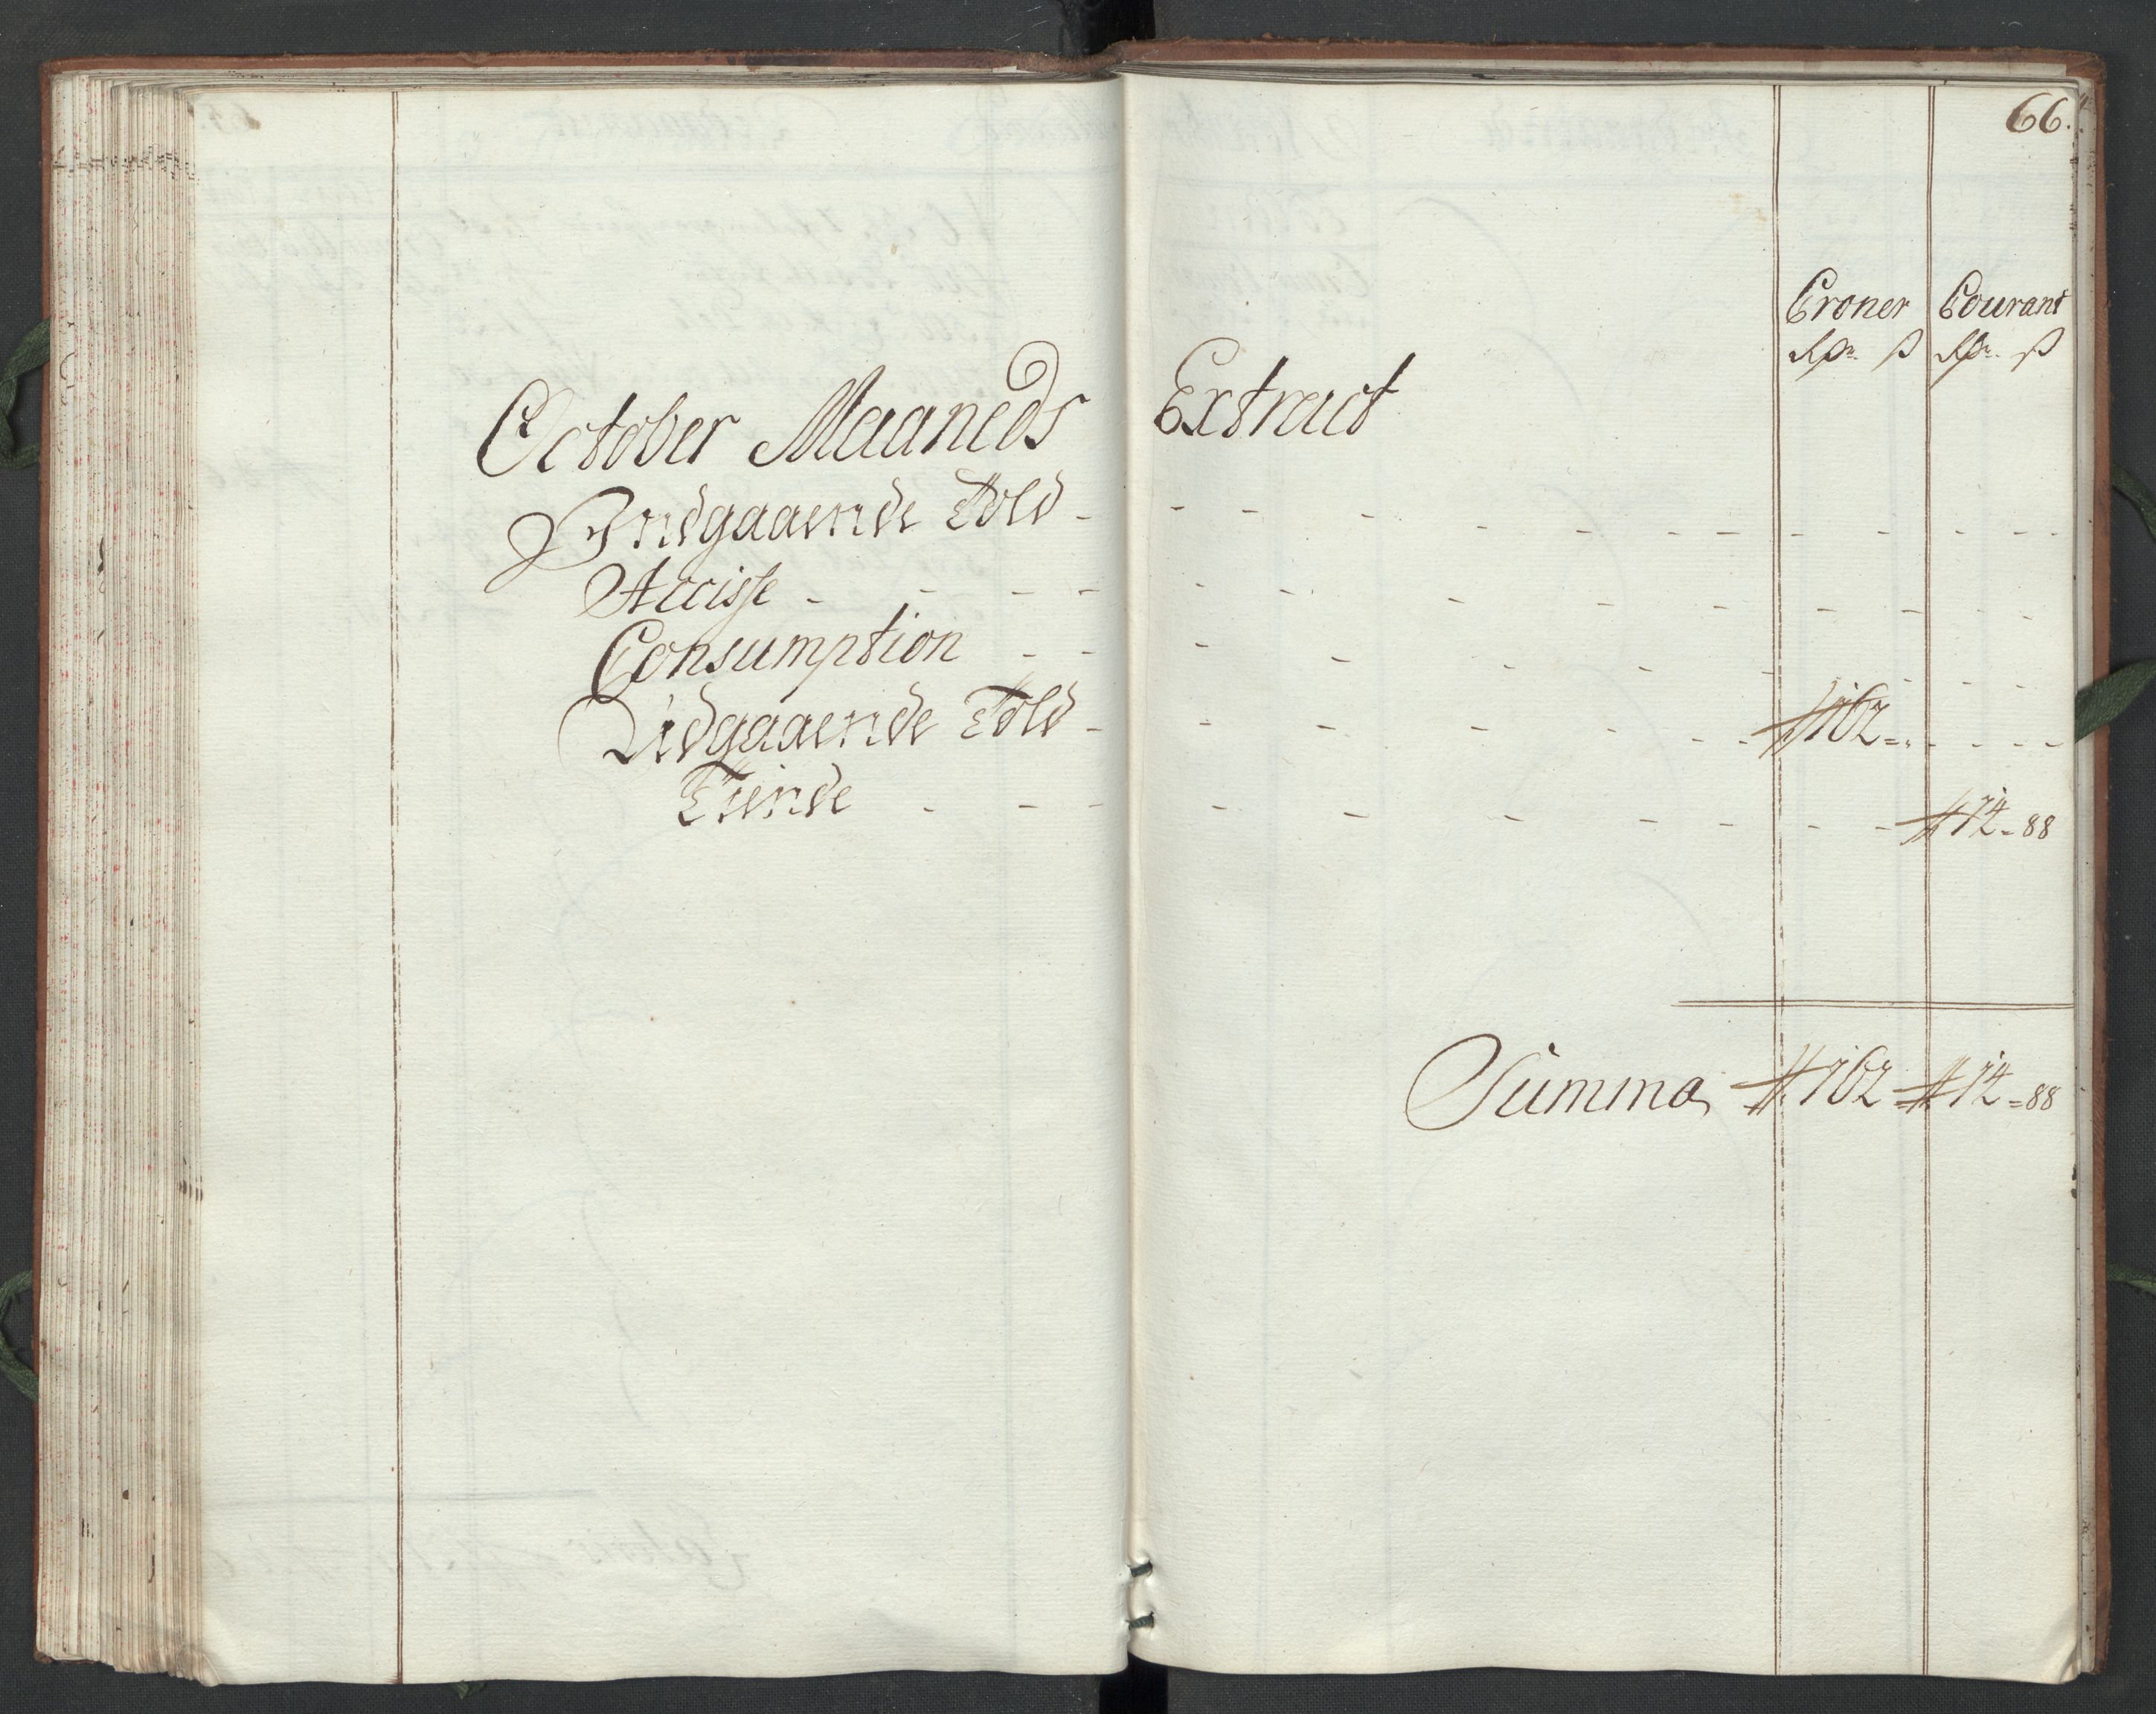 66.
Croner Courant
Rdr. ß Rdr. ß
October Maaneds Extract
Indgaaende Told - - - - - - - - - - - - -
Accisse - - - - - - - - - - - -
Consumption - - - - - - - - - -
Udgaaende Told - - - - - - - # 162 = " - - - -
Tiende - - - - - - - - - - - # 74 = 88
Summa # 162 = # 74 = 88